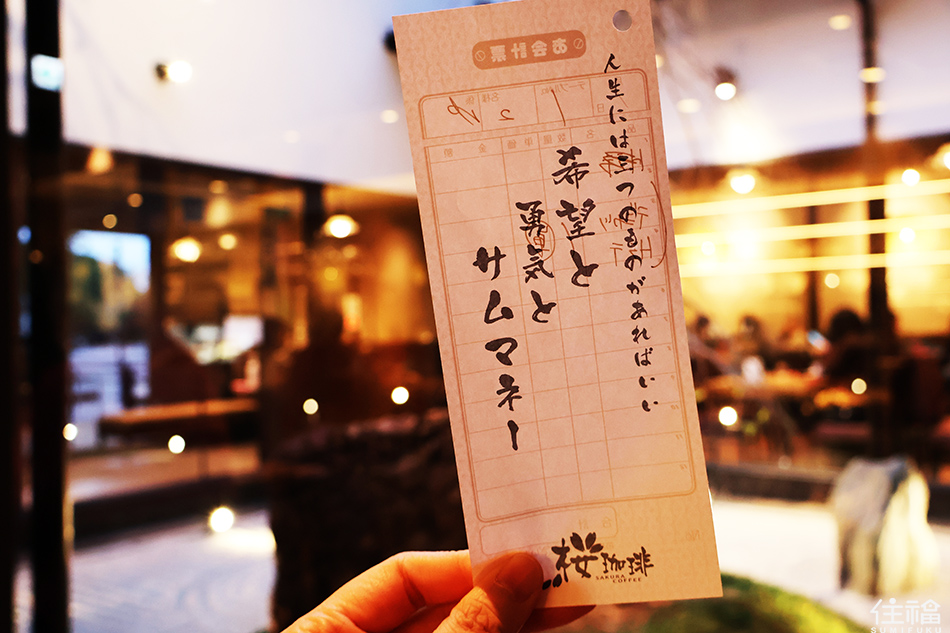 人生には三つのものがあればいい
希望と
勇気と
サムマネー
お会計票
桜珈琲
SAKURA COFFEE
住福
SUMIFUKU